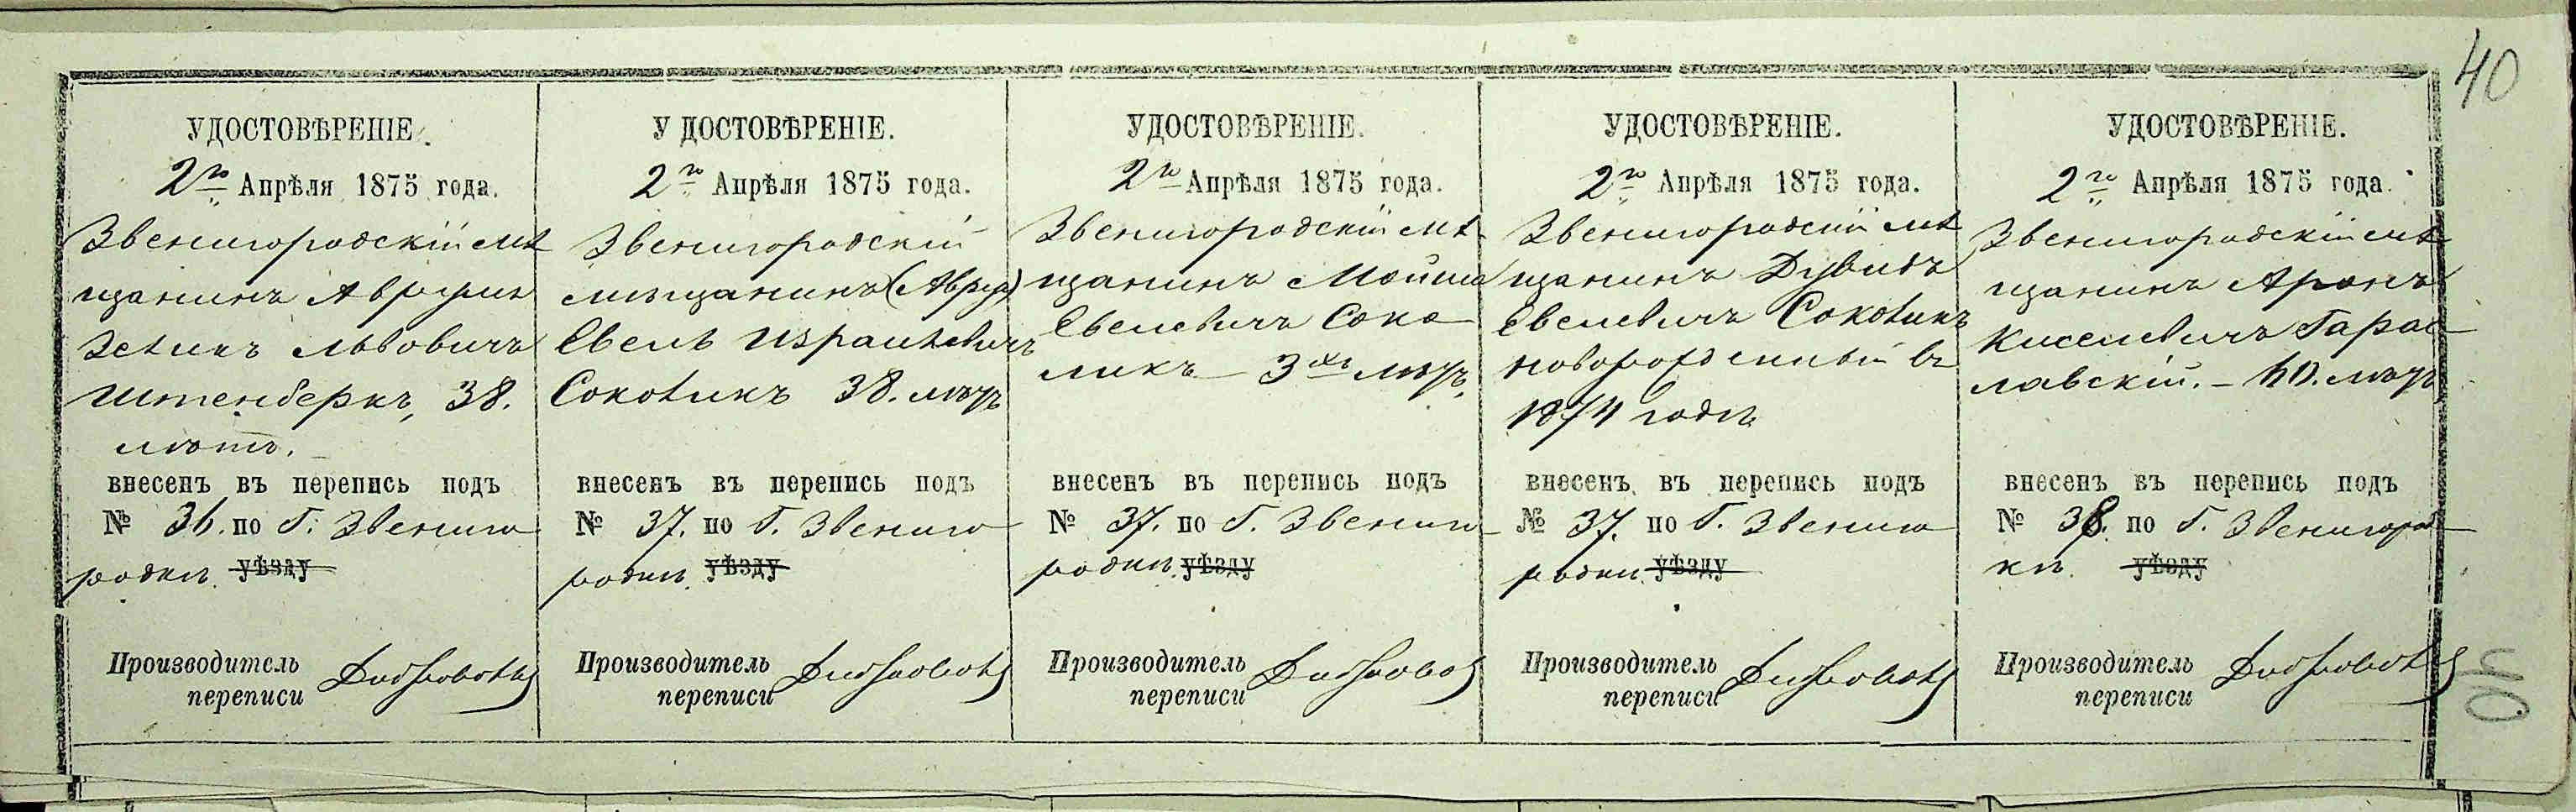 40
УДОСТОВѢРЕНІЕ.
2го Апрѣля 1875 года.
Звенигородскій мѣ
щанинъ Аврумъ
Зельикъ Львовичъ
Штенберкъ, 38.
лѣтъ.
внесенъ въ перепись подъ
№ 36. по Г. Звениго
родки. уѣзду
Производитель
переписи
У ДОСТОВѢРЕНІЕ.
2го Апрѣля 1875 года.
Звенигородскій
мѣщанинъ (Аврум)
Евель Израилевичъ
Соколикъ 38. лѣтъ
внесенъ въ перепись подъ
№ 37. по Г. Звениго
родки. уѣзду
Производитель
переписи
УДОСТОВѢРЕНІЕ.
2го Апрѣля 1875 года.
Звенигородскій мѣ
щанинъ Мойша
Евелевичъ Соко
ликъ 3хъ лѣтъ.
внесенъ въ перепись подъ
№ 37. по Г. Звениго
родки. уѣзду
Производитель
переписи
УДОСТОВѢРЕНІЕ.
2го Апрѣля 1875 года.
Звенигородскій мѣ
щанинъ Дувидъ
Евелевичъ Соколикъ
новорожденный въ
1874 году
внесенъ въ перепись подъ
№ 37. по Г. Звениго
родки уѣзду
Производитель
переписи
УДОСТОВѢРЕНІЕ.
2го Апрѣля 1875 года.
Звенигородскій мѣ
щанинъ Аронъ
Киселевичъ Гарас
лавскій. - 40. лѣтъ
внесенъ въ перепись подъ
№ 38. по Г. Звенигород
ки. уѣзду
Производитель
переписи
40